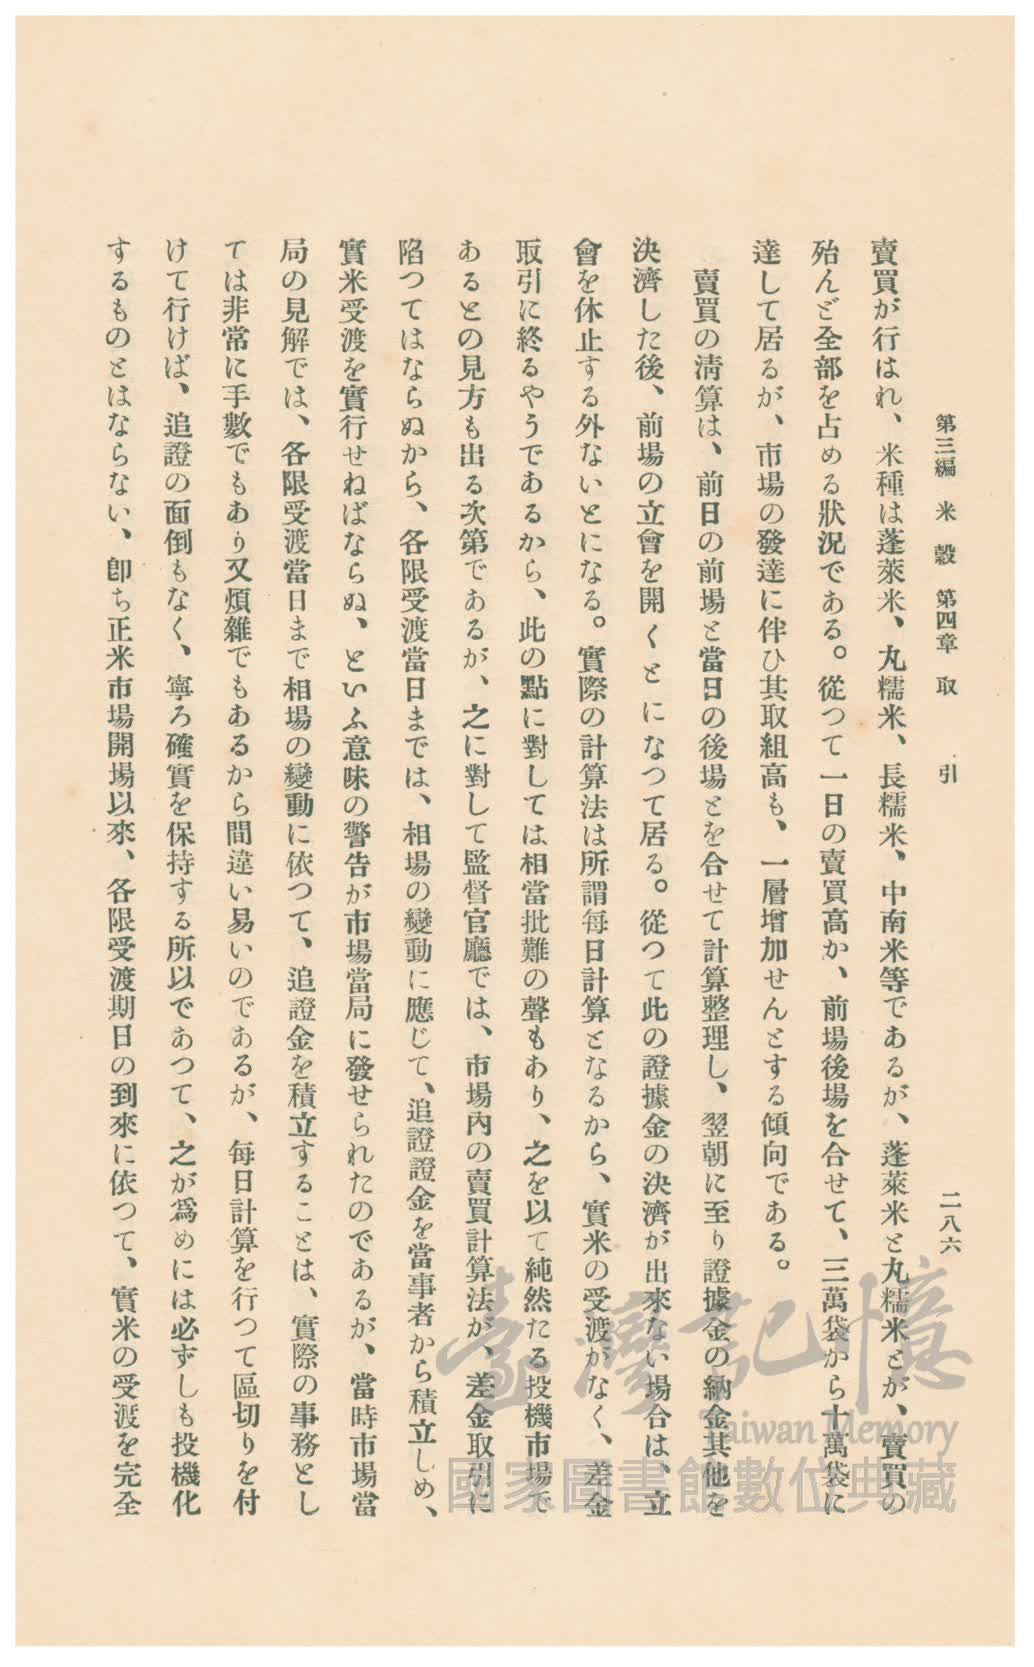 第三編 米 穀 第四章 取 引
二八六
賣買が行はれ、米種は蓬萊米、丸糯米、長糯米、中南米等であるが、蓬萊米と丸糯米とが、賣買の
殆んど全部を占める狀況である。從つて一日の賣買高か、前場後場を合せて、三萬袋から十萬袋に
達して居るが、市場の發達に伴ひ其取組高も、一層增加せんとする傾向である。
賣買の淸算は、前日の前場と當日の後場とを合せて計算整理し、翌朝に至り證據金の納金其他を
決濟した後、前場の立會を開くとになつて居る。從つて此の證據金の決濟が出來ない場合は、立
會を休止する外ないとになる。實際の計算法は所謂每日計算となるから、實米の受渡がなく、差金
取引に終るやうであるから、此の點に對しては相當批難の聲もあり、之を以て純然たる投機市場で
あるとの見方も出る次第であるが、之に對して監督官廳では、市場內の賣買計算法が、差金取引に
陷つてはならぬから、各限受渡當日までは、相場の變動に應じて、追證證金を當事者から積立しめ、
實米受渡を實行せねばならぬ、といふ意味の警告が市場當局に發せられたのであるが、當時市場當
局の見解では、各限受渡當日まで相場の變動に依つて、追證金を積立することは、實際の事務とし
ては非常に手數でもあり又煩雜でもあるから間違い易いのであるが、每日計算を行つて區切りを付
けて行けば、追證の面倒もなく、寧ろ確實を保持する所以であつて、之が爲めには必ずしも投機化
するものとはならない、卽ち正米市場開場以來、各限受渡期日の到來に依つて、實米の受渡を完全
臺灣記憶
Taiwan Memory
國家圖書館數位典藏